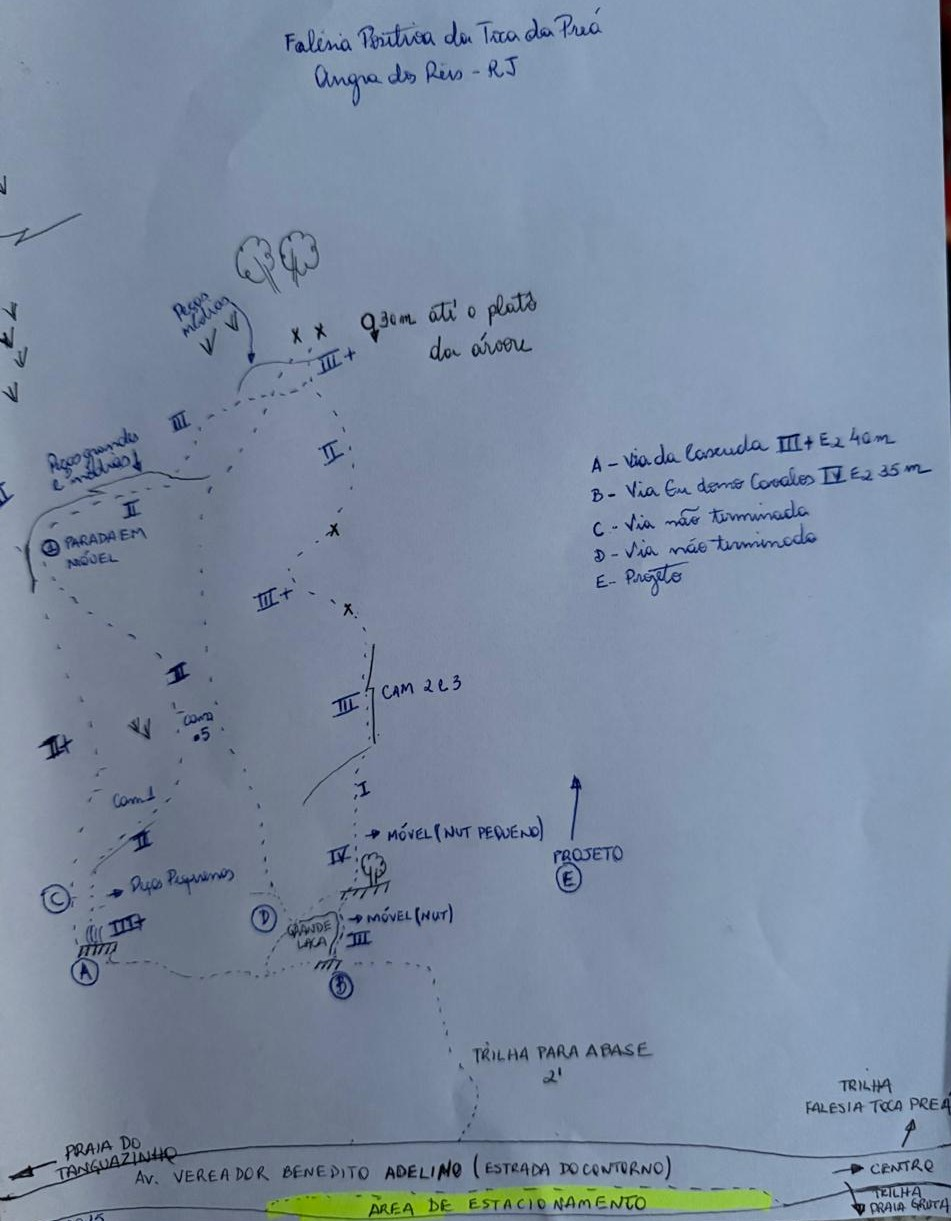 Falésia Positiva da Toca da Preá
Angra dos Reis - RJ
Peças
médias
x x
30m até o platô
da árvore
III+
III
Peças grandes
e médias
II
II
1 PARADA EM
MÓVEL
x
III+
x
A - Via da Cascuda III+ E2 40m
B - Via Eu domo Cavalos IV E2 35m
C - Via não terminada
D - Via não terminada
E - Projeto
II
CAM 2 e 3
III
Cam
.5
II+
Cam 1
I
II
MÓVEL (NUT PEQUENO)
IV
PROJETO
E
Peças Pequenas
C
III+
D
GRANDE
LACA
MÓVEL (NUT)
III
A
B
TRILHA PARA A BASE
2'
TRILHA
FALESIA TOCA PREÁ
PRAIA DO
TANGUAZINHO
AV. VEREADOR BENEDITO ADELINO (ESTRADA DO CONTORNO)
CENTRO
ÁREA DE ESTACIONAMENTO
TRILHA
PRAIA GRUTA